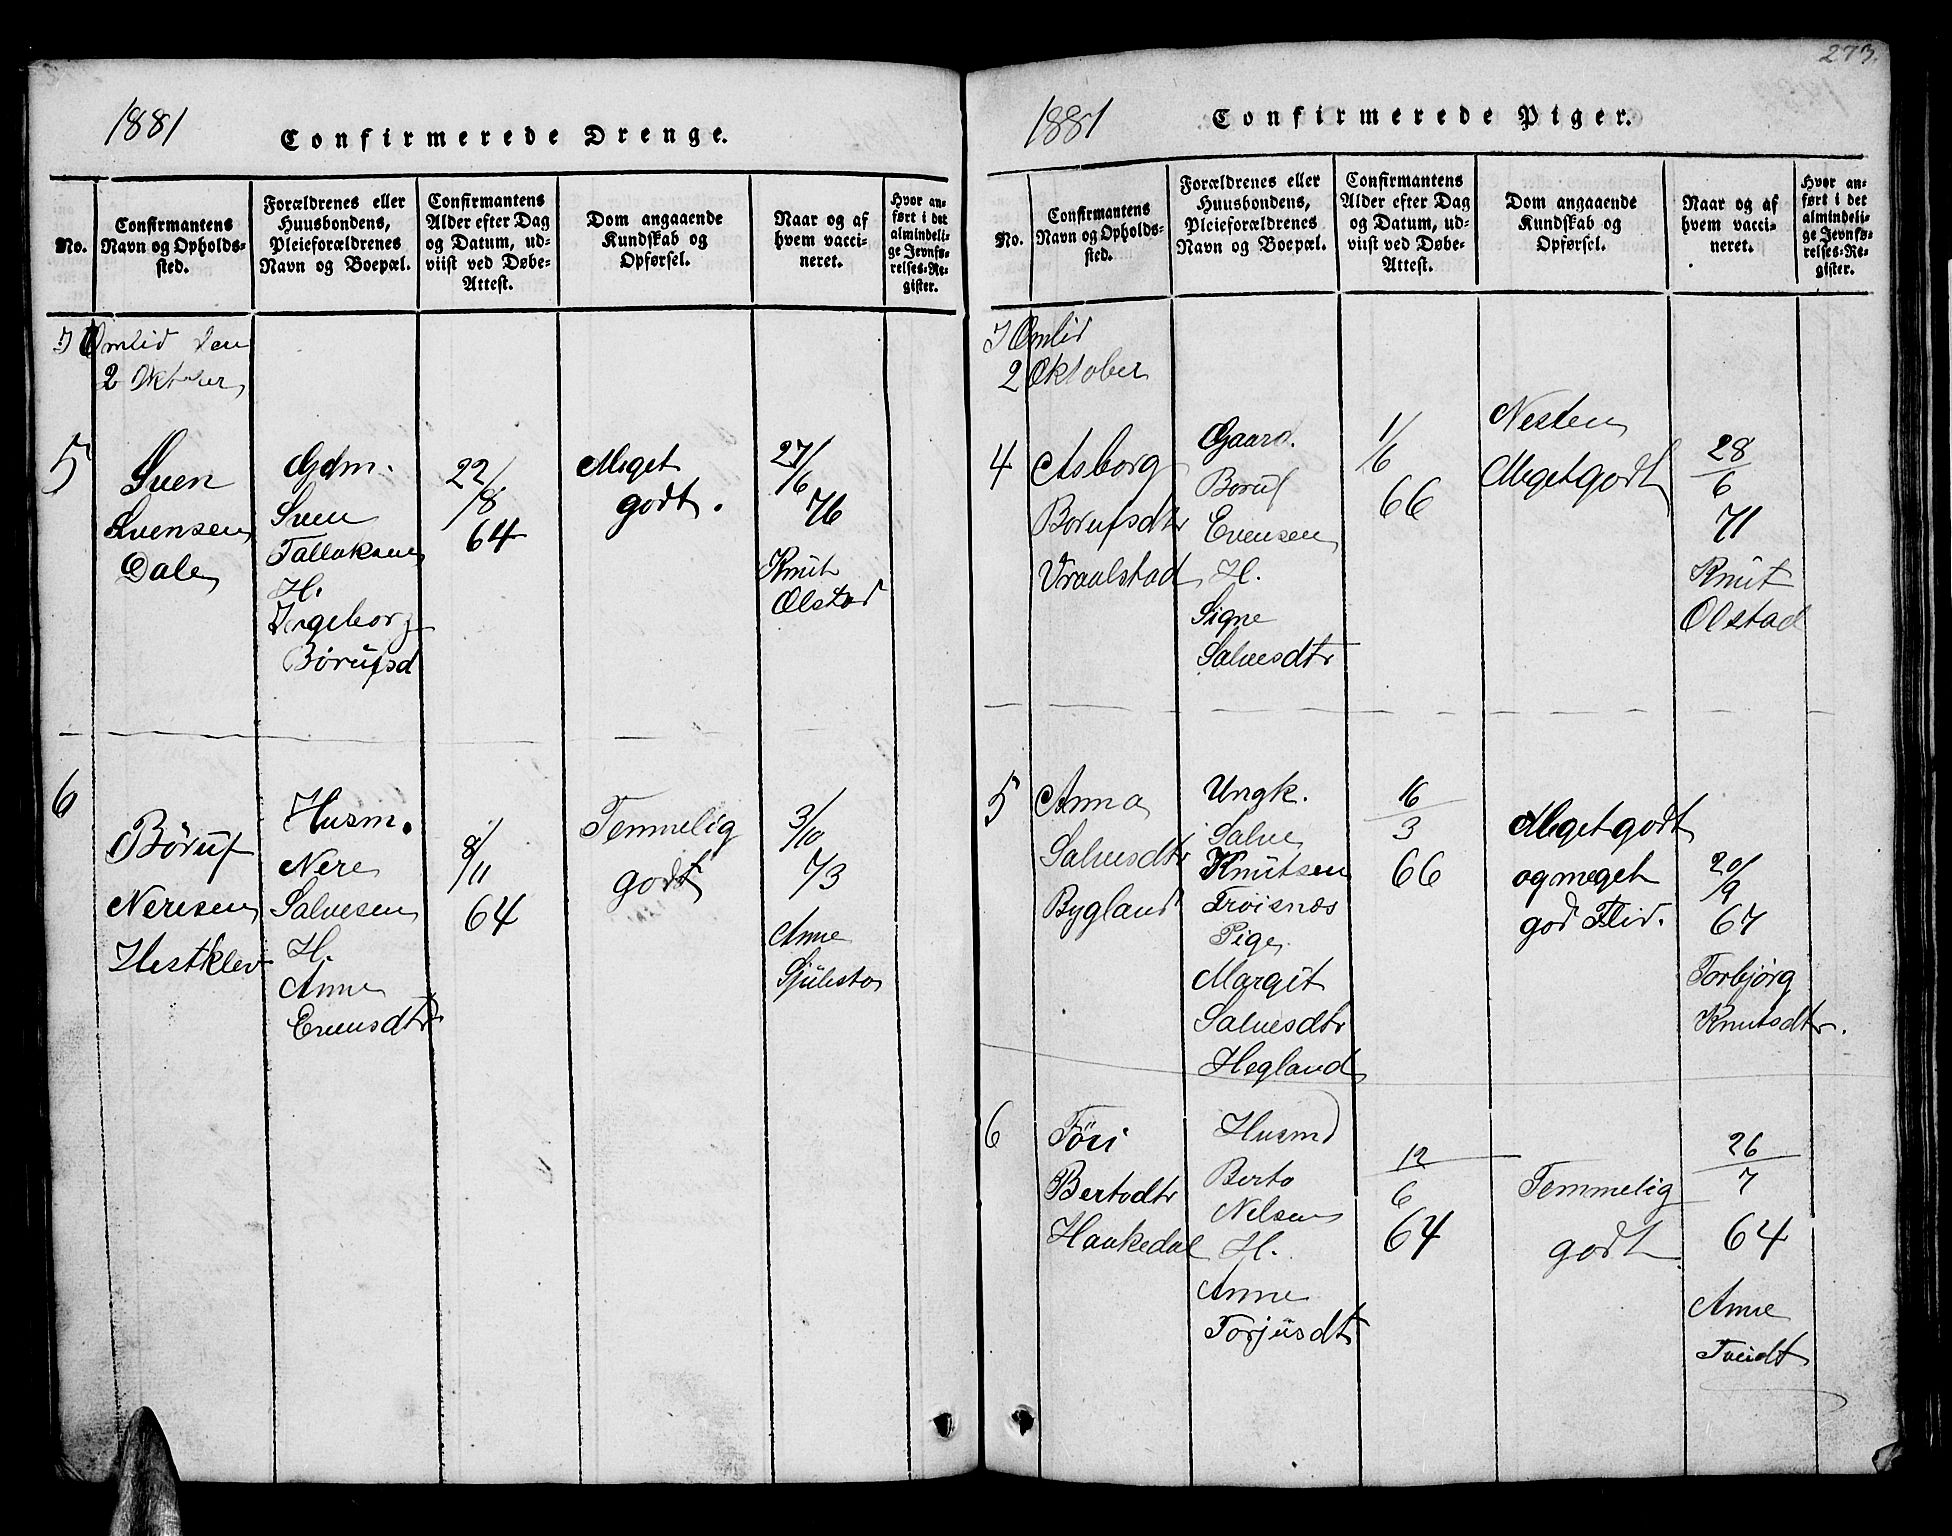 273.
1881
Confirmerede Drenge.
No.
Confirmantens
Navn og Opholds-
sted.
Forældrenes eller
Huusbondens,
Pleieforældrenes
Navn og Boepæl.
Confirmantens
Alder efter Dag
og Datum, ud-
viist ved Døbe-
Attest.
Dom angaaende
Kundskab og
Opførsel.
Naar og af
hvem vacci-
neret.
Hvor an-
ført i det
almindeli-
ge Jevnfø-
relses-Re-
gister.
I Omlid den
2 Oktober
5
Sven
Svensen
Dale
Gdm.
Sven
Tallaksen
H.
Ingeborg
Børufsd
22/8
64
Meget
godt.
27/6
76
Knut
Olstad
6
Børuf
Neresen
Hestklev
Husm.
Nere
Salvesen
H.
Anne
Evensdtr
8/11
64
Temmelig
godt
3/10
73
Anne
1881
Confirmerede Piger.
No.
Confirmantens
Navn og Opholds-
sted.
Forældrenes eller
Huusbondens,
Pleieforældrenes
Navn og Boepæl.
Confirmantens
Alder efter Dag
og Datum, ud-
viist ved Døbe-
Attest.
Dom angaaende
Kundskab og
Opførsel.
Naar og af
hvem vacci-
neret.
Hvor an-
ført i det
almindeli-
ge Jevnfø-
relses-Re-
gister.
I Omlid
2 Oktober
4
Asborg
Borufsdtr
Vraalstad
Gaard.
Boruf
Evensen
H.
Signe
Salvesdtr
1/6
66
Nesten
Meget godt
28
6
71
Knut
Olstad
5
Anna
Salvesdtr
Bygland
Ungk.
Salve
Knutsen
Trøisnæs
Pige
Margit
Salvesdtr
Hegland
16
3
66
Meget godt
og meget
god Flid.
20/9
67
Torbjørg
Knutsdtr.
6
Töri
Bertodtr
Haukedal
Husmd
Berto
Nelsen
H.
Anne
Torjusdt
12
6
64
Temmelig
godt
26
7
64
Anne
Tveidt